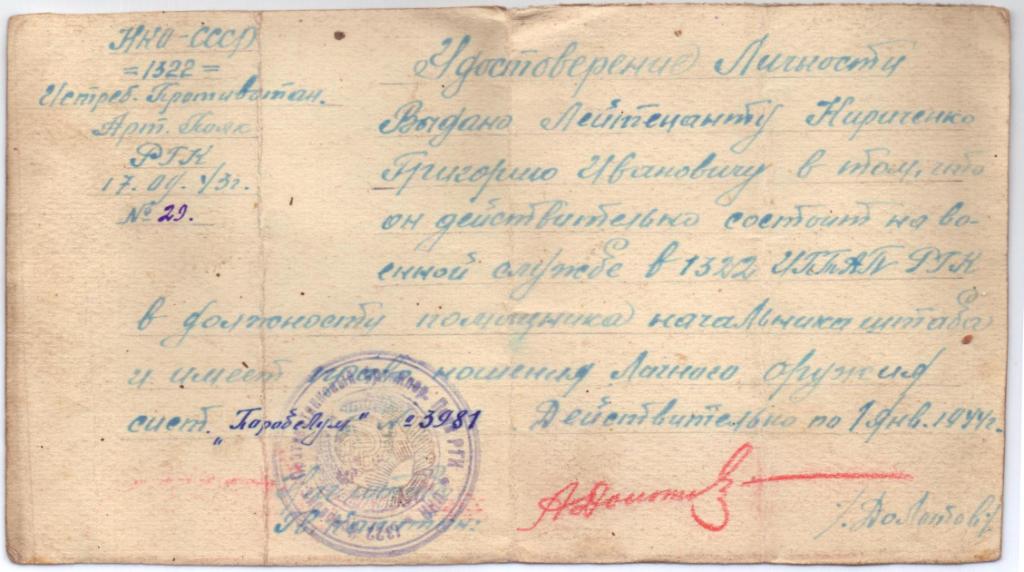 НКО-СССР
=1322=
Истреб. Противотан.
Арт. Полк
РГК
17. 09. 43г.
№ 29.
Удостоверение Личности
Выдано Лейтенанту Кириченко
Григорию Ивановичу в том, что
он действительно состоит на во-
енной службе в 1322 ИПТАП РГК
в должности помощника начальника штаба
и имеет право ношения Личного оружия
сист. „Парабелум" № 3981 Действительно по 1 янв. 1944г.
/Долотов/